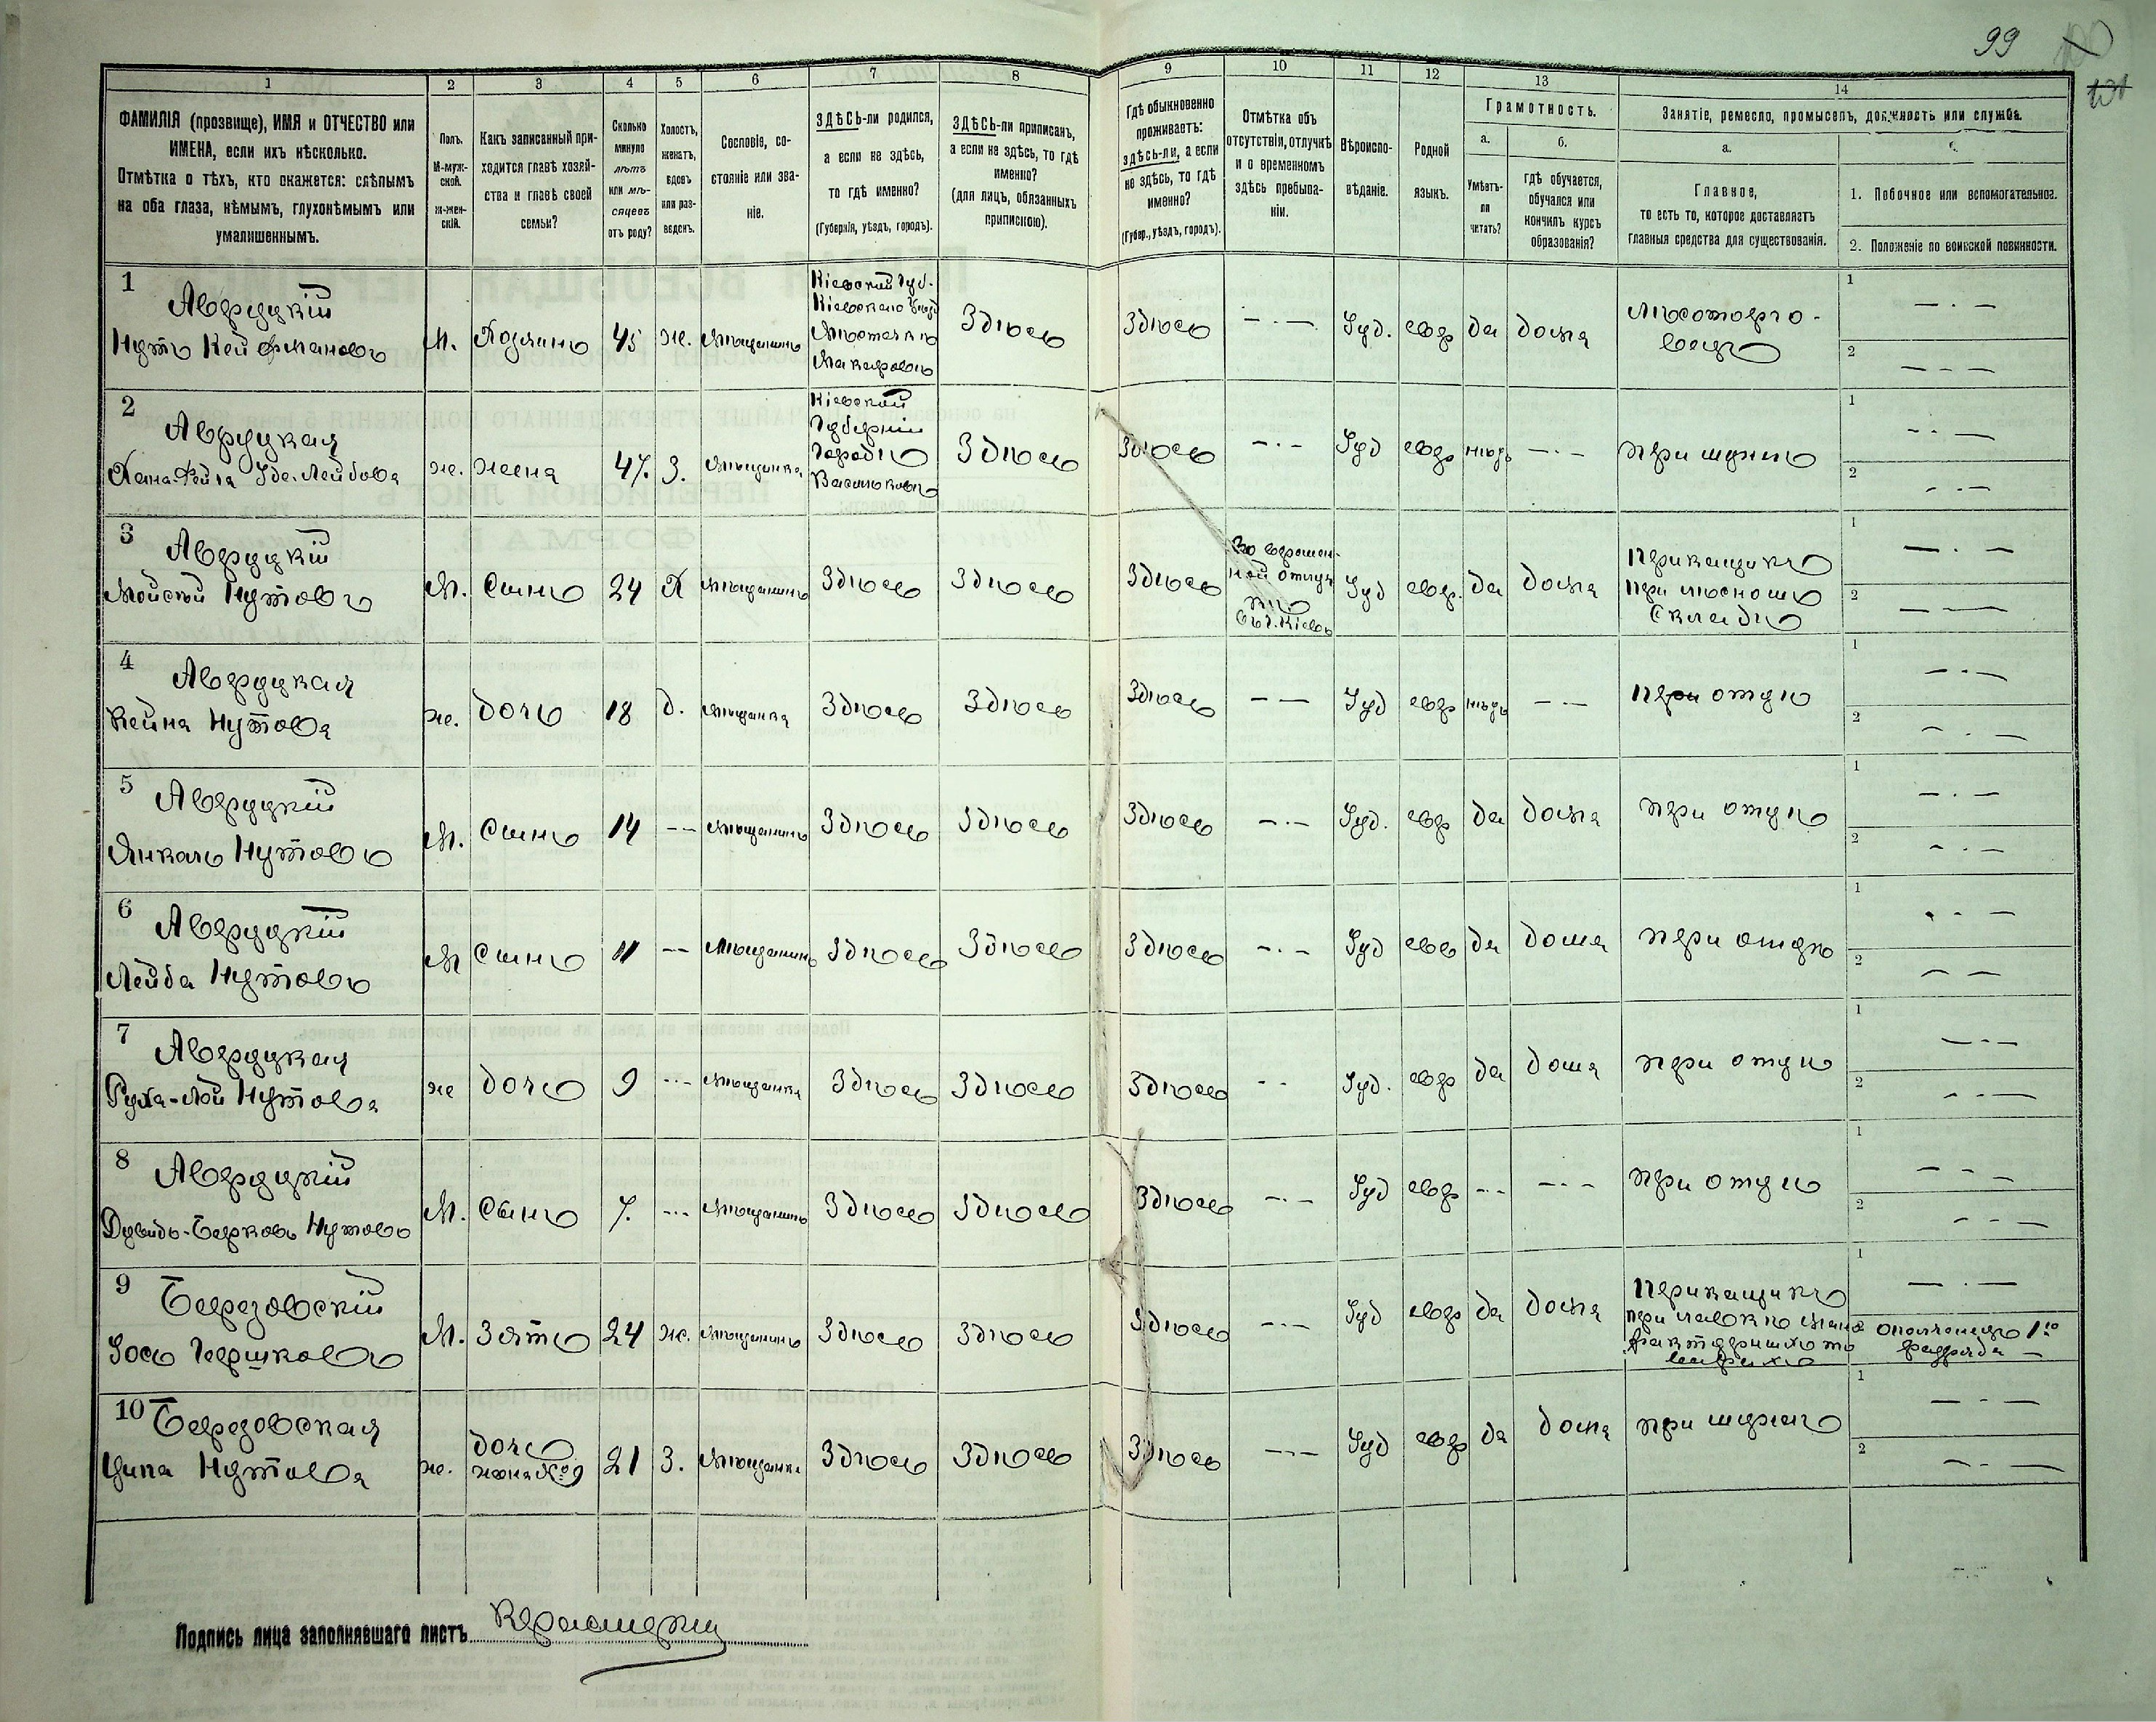 99
1 2 3 4 5 6 7 8 9 10 11 12 13 14
ФАМИЛІЯ (прозвище), ИМЯ и ОТЧЕСТВО или
ИМЕНА, если ихъ нѣсколько.
Отмѣтка о тѣхъ, кто окажется: слѣпымъ
на оба глаза, нѣмымъ, глухонѣмымъ или
умалишеннымъ.
Полъ.
М-муж-
ской.
Ж-жен-
скій.
Какъ записанный при-
ходится главѣ хозяй-
ства и главѣ своей
семьи?
Сколько
минуло
лѣтъ
или мѣ-
сяцевъ
отъ роду?
Холостъ,
женатъ,
вдовъ
или раз-
веденъ.
Сословіе, со-
стояніе или зва-
ніе.
ЗДѢСЬ-ли родился,
а если не здѣсь,
то гдѣ именно?
(Губернія, уѣздъ, городъ).
ЗДѢСЬ-ли приписанъ,
а если не здѣсь, то гдѣ
именно?
(для лицъ, обязанныхъ
припискою).
Гдѣ обыкновенно
проживаетъ:
здѣсь-ли, а если
не здѣсь, то гдѣ
именно?
(Губер., уѣздъ, городъ).
Отмѣтка объ
отсутствіи, отлучкѣ
и о временномъ
здѣсь пребыва-
ніи.
Вѣроиспо-
вѣданіе.
Родной
языкъ.
Грамотность.
а.
Умѣетъ-
ли
читать?
б.
гдѣ обучается,
обучался или
кончилъ курсъ
образованія?
Занятіе, ремесло, промыселъ, должность или служба.
а.
Главное,
то есть то, которое доставляетъ
главныя средства для существованія.
1. Побочное или вспомогательное.
2. Положеніе по воинской повинности.
1
Аврудкій
Нутъ
М. Хозяинъ 45 ж. Мѣщанинъ
Кіевской Губ.
Кіевскаго Уѣзд
Мѣстечкѣ
Макаровѣ
Здѣсь Здѣсь — . — Іуд. евр да дома
Лѣсоторго-
вецъ
1 — . —
2 — — —
2
Аврудкая
Хана-Фейга Лейбова
же. жена 47. З. Мѣщанка
Кіевской
Губерніи
Городѣ
Васильковѣ
Здѣсь Здѣсь — . — Іуд евр нѣтъ — . — при мужѣ
1 — . —
2 — . —
3
Аврудкій
Мойсей Нутовъ
М. Сынъ 24 Х Мѣщанинъ Здѣсь Здѣсь Здѣсь
Во времен-
ной отлуч
кѣ
въ г. Кіевѣ
Іуд евр. да дома
Прикащикъ
при лѣсномъ
Складѣ
1 — . —
2 — —
4
Аврудкая
Нутова
же. дочь 18 д. Мѣщанка Здѣсь Здѣсь Здѣсь — — Іуд евр нѣтъ — — при отцѣ
1 — . —
2 — . —
5
Аврудкій
Янкель Нутовъ
М. Сынъ 14 — — Мѣщанинъ Здѣсь Здѣсь Здѣсь — . — Іуд. евр да дома при отцѣ
1 — . —
2 — . —
6
Аврудкій
Лейба Нутовъ
М Сынъ 11 — — Мѣщанинъ Здѣсь Здѣсь Здѣсь — . — Іуд евр да дома при отцѣ
1 — . —
2 — —
7
Аврудкая
Нутова
же дочь 9 — . — Мѣщанка Здѣсь Здѣсь Здѣсь — — Іуд. евр да дома при отцѣ
1 — . —
2 — . —
8
Аврудкій
Дувидъ-Берковъ Нутовъ
М. Сынъ 7. — . — Мѣщанинъ Здѣсь Здѣсь Здѣсь — . — Іуд евр — — — . — при отцѣ
1 — — —
2 — . —
9
Березовскій
Іось Гершковъ
М. Зять 24 ж. Мѣщанинъ Здѣсь Здѣсь Здѣсь — . — Іуд евр да дома
Прикащикъ
при лавкѣ
1 — . —
2 ополченецъ 1го
разряда —
10
Березовская
Ципа Нутова
же.
дочь
жена № 9
21 З. Мѣщанка Здѣсь Здѣсь Здѣсь — . — Іуд евр да дома при мужѣ
1 — . —
2 — . —
Подпись лица заполнявшаго листъ